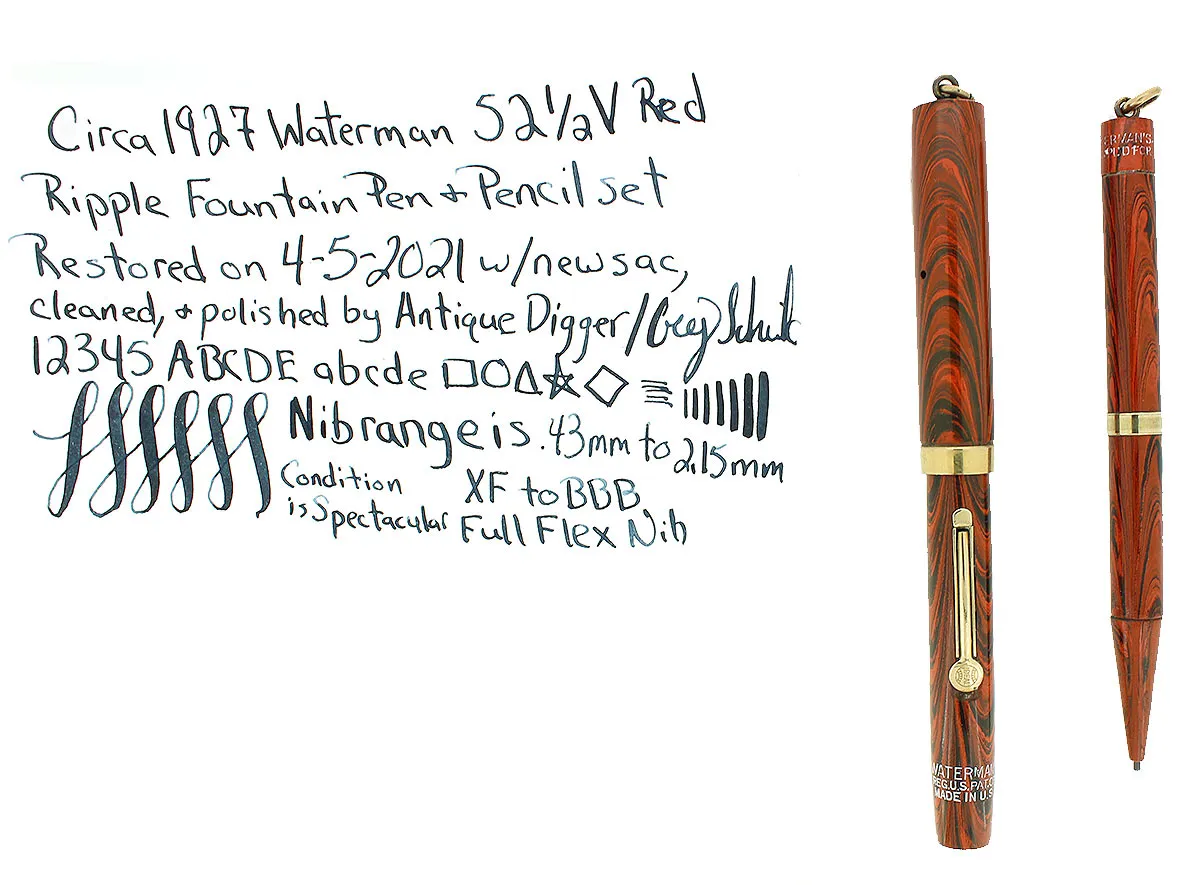 Circa 1927 Waterman 52½V Red
Ripple Fountain Pen + Pencil set
Restored on 4-5-2021 w/new sac,
cleaned, + polished by Antique Digger/Greg
12345 ABCDE abcde
Nib range is .43mm to 2.15mm
Condition
is Spectacular
XF to BBB
Full Flex Nib
ERMAN'S
WATERMAN
REG.U.S.PAT.O
MADE IN U.S